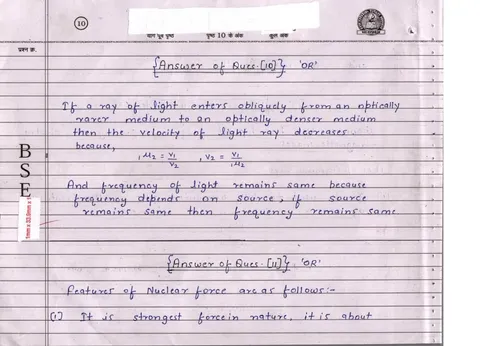 10
योग पूर्व पृष्ठ
पृष्ठ 10 के अंक
कुल अंक
प्रश्न क्र.
{Answer of Ques-[10]} 'OR'
If a ray of light enters obliquely from an optically
rarer medium to an optically denser medium
then the velocity of light ray decreases.
because,
₁μ₂ = V₁/V₂ , V₂ = V₁/₁μ₂
And frequency of light remains same because
frequency depends on source, if source
remains same then frequency remains same
B
S
E
{Answer of Ques-[11]} 'OR'
Features of Nuclear force are as follows:-
(1) It is strongest force in nature, it is about